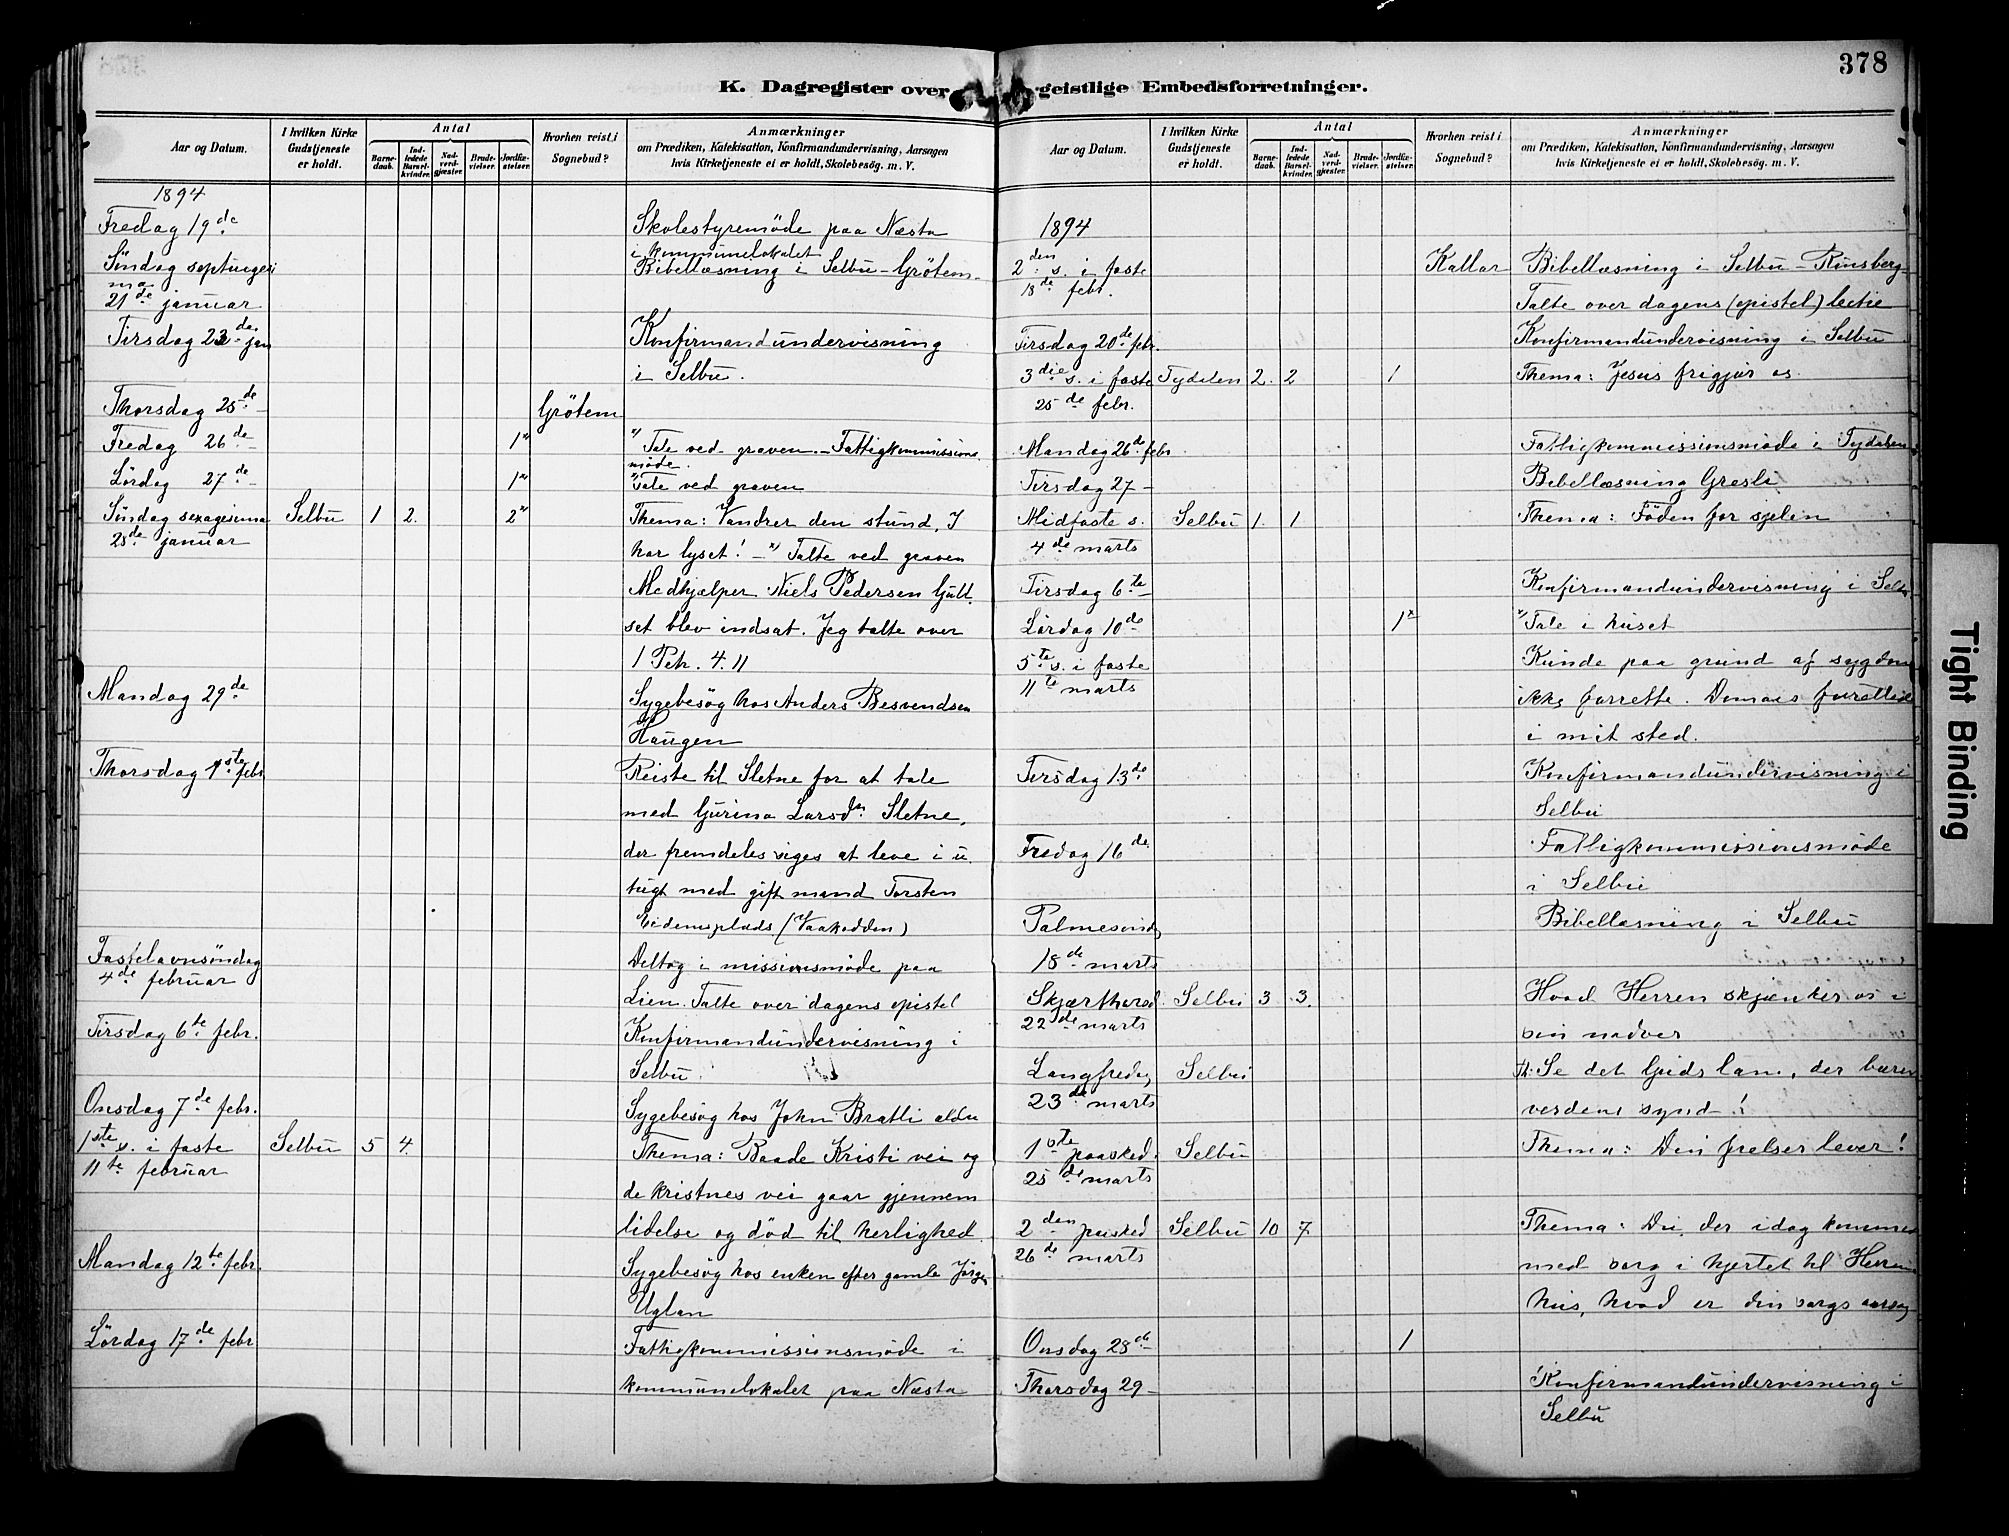 378
K. Dagregister over geistlige Embedsforretninger.
Aar og Datum.
I hvilken Kirke Gudstjeneste er holdt.
Antal
Barnedaab.
Indledede Barselkvinder.
Nadverdgjæster.
Brudevielser.
Jordfæstelser.
Hvorhen reist i Sognebud?
Anmærkninger
om Prædiken, Katekisation, Konfirmandundervisning, Aarsagen
hvis Kirketjeneste ei er holdt, Skolebesøg. m. V.
1894
Fredag 19de Skolestyremöde paa Næsta
i kommunelokalet
Söndag septuagesi Bibellæsning i Selbu - Grötem
ma
21de januar
Tirsdag 23de jan Konfirmandundervisning
i Selbu.
Thorsdag 25de Grötem
Fredag 26de 1x x) Tale ved graven. - Fattigkommissions
möde.
Lördag 27de 1x x) Tale ved graven
Söndag sexagesima Selbu 1 2. 2x Thema: Vandrer den stund, I
28de januar har lyset! - x) Talte ved graven
Medhjælper Niels Pedersen Guld
set blev indsat. Jeg talte over
1 Petr. 4.11
Mandag 29de Sygebesög hos Anders Besvendsen
Haugen
Thorsdag 1ste febr Reiste til Sletne for at tale
med Gurina Larsdn Sletne,
der fremdeles siges at leve i u
tugt med gift mand Torsten
Eidemsplads (Vaakodden)
Fastelavnsöndag Deltog i missionsmöde paa
4de februar
Lien. Talte over dagens epistel
Tirsdag 6te febr. Konfirmandundervisning i
Selbu
Onsdag 7de febr. Sygebesög hos John Bratli eldre
1ste s. i faste Selbu 5 4. Thema: Baade Kristi vei og
11te februar
de kristnes vei gaar gjennem
lidelse og död til herlighed.
Mandag 12te febr. Sygebesög hos enken efter gamle Jörgen
Uglan
Lördag 17de febr Fattigkommissionsmöde i
kommunelokalet paa Næsta
Aar og Datum.
I hvilken Kirke Gudstjeneste er holdt.
Antal
Barnedaab.
Indledede Barselkvinder.
Nadverdgjæster.
Brudevielser.
Jordfæstelser.
Hvorhen reist i Sognebud?
Anmærkninger
om Prædiken, Katekisation, Konfirmandundervisning, Aarsagen
hvis Kirketjeneste ei er holdt, Skolebesøg. m. V.
1894
2den s. i faste Kallar Bibellæsning i Selbu - Kinsberg
18de febr.
Talte over dagens (epistel) lectie
Tirsdag 20de febr. Konfirmandundervisning i Selbu
3die s. i faste Tydalen 2. 2 1 Thema: Jesus frigjør os.
25de febr.
Mandag 26de febr. Fattigkommissionsmöde i Tydalen
Tirsdag 27 - Bibellæsning Gresli
Midfaste s. Selbu 1. 1 Thema: Föden for sjelen
4de marts
Tirsdag 6te Konfirmandundervisning i Selbu
Lördag 10de 1x x) Tale i huset
5te s. i faste Kunde paa grund af sygdom
11te marts ikke forrette. Domaas forrettede
i mit sted.
Tirsdag 13de Konfirmandundervisning i
Selbu
Fredag 16de Fattigkommissionsmöde
i Selbu
Palmesönd. Bibellæsning i Selbu
18de marts
Skjærthorsd. Selbu 3 3. Hvad Herren skjænker os i
22de marts sin nadver
Langfredag Selbu Th: Se det Guds lam, der bærer
23de marts verdens synd!
1ste paasked. Selbu Thema: Din frelser lever!
25de marts
2den paasked Selbu 10 7. Thema: Du, der idag kommer
26de marts med sorg i hjertet til Herrens
hus, hvad er din sorgs aarsag
Onsdag 28de 1
Thorsdag 29 - Konfirmandundervisning i
Selbu
Tight Binding